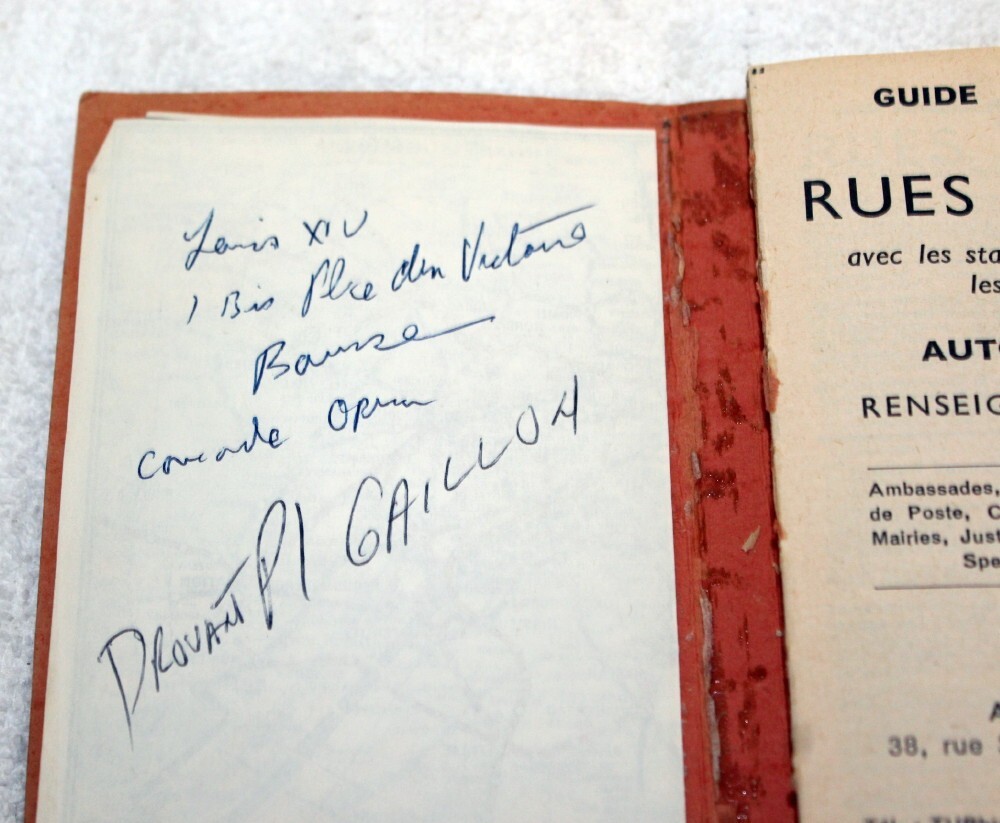 Louis XIV
1 Bis Place des Victoire
Bourse
Concorde Opera
DROUANT Pl GAILLON
GUIDE
RUES
avec les sta
les
AUTO
RENSEIG
Ambassades,
de Poste, C
Mairies, Just
Spe
A
38, rue